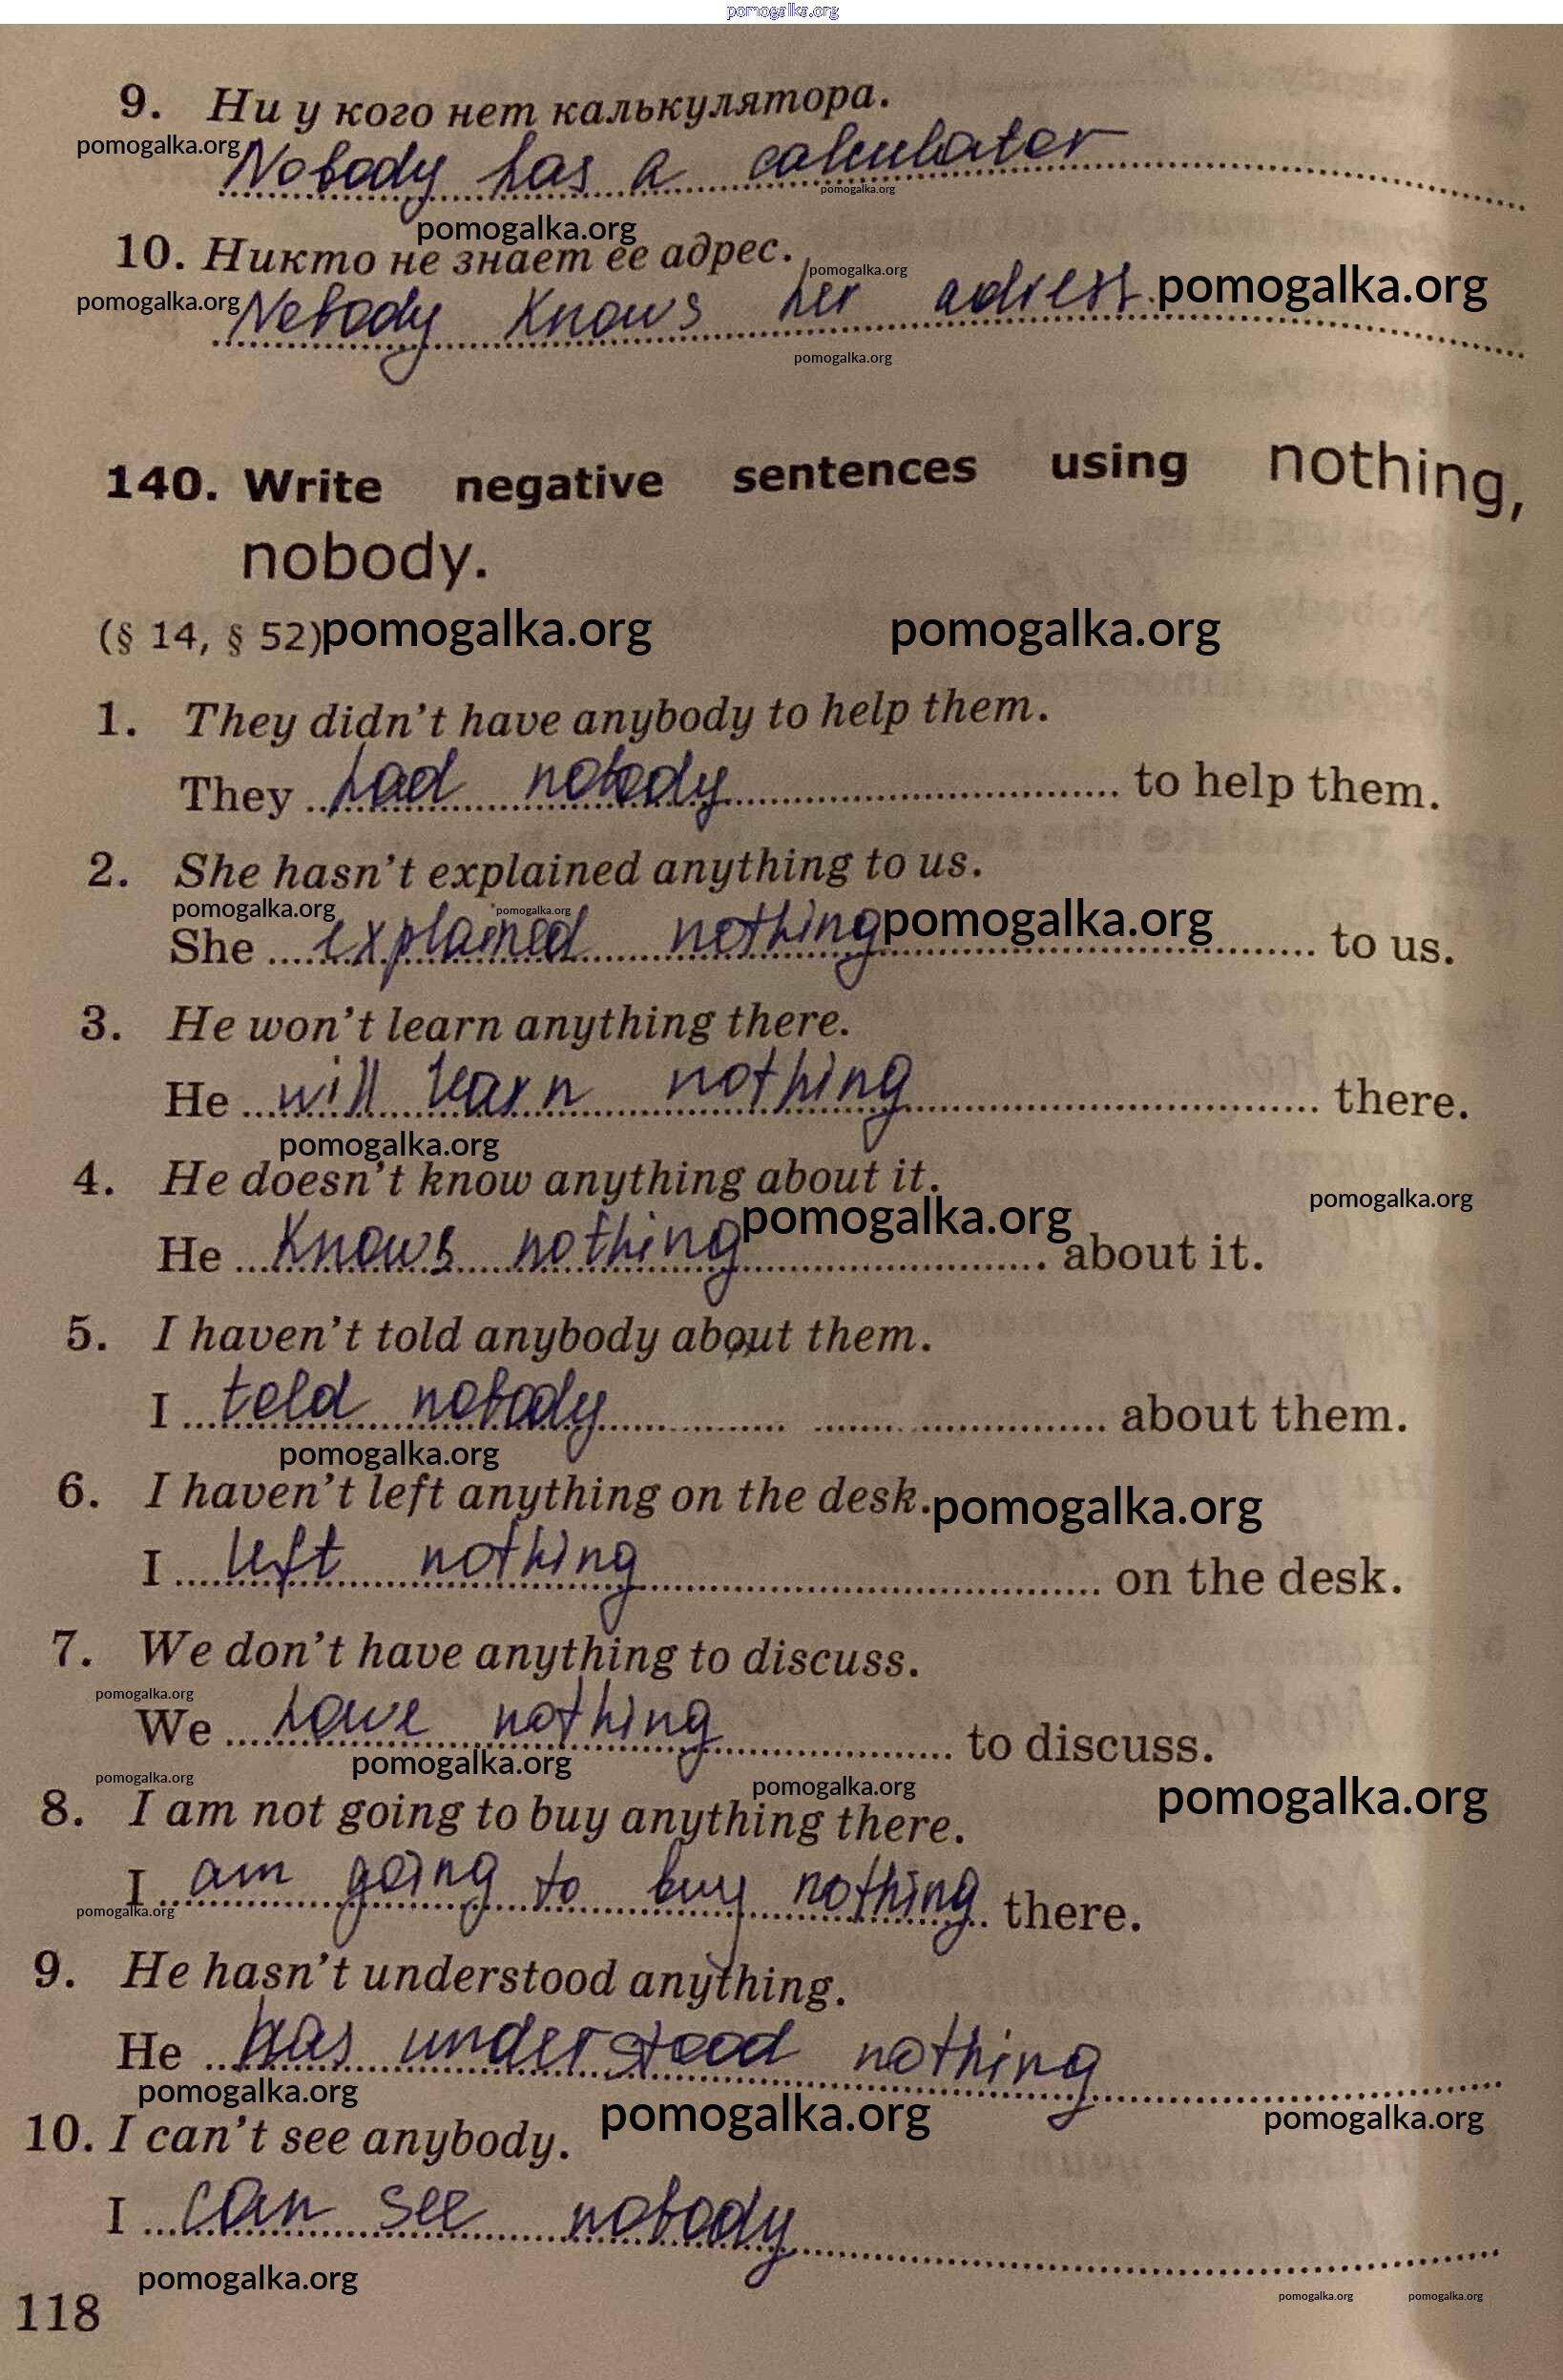 pomogalka.org
9. Ни у кого нет калькулятора.
pomogalka.org
Nobody has a calculater
pomogalka.org
pomogalka.org
10. Никто не знает ее адрес.
pomogalka.org
pomogalka.org
pomogalka.org
Nobody knows her adress.
pomogalka.org
140. Write negative sentences using nothing,
nobody.
(§ 14, § 52)
pomogalka.org
pomogalka.org
1. They didn't have anybody to help them.
They had nobody to help them.
2. She hasn't explained anything to us.
pomogalka.org
pomogalka.org
pomogalka.org
She explained nothing to us.
3. He won't learn anything there.
He will learn nothing there.
pomogalka.org
4. He doesn't know anything about it.
pomogalka.org
pomogalka.org
He knows nothing about it.
5. I haven't told anybody about them.
I told nobody about them.
pomogalka.org
6. I haven't left anything on the desk.
pomogalka.org
I left nothing on the desk.
7. We don't have anything to discuss.
pomogalka.org
We have nothing to discuss.
pomogalka.org
pomogalka.org
pomogalka.org
pomogalka.org
8. I am not going to buy anything there.
I am going to buy nothing there.
pomogalka.org
9. He hasn't understood anything.
He has understood nothing
pomogalka.org
pomogalka.org
pomogalka.org
10. I can't see anybody.
I can see nobody
pomogalka.org
pomogalka.org
pomogalka.org
118